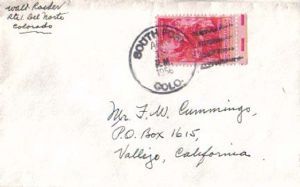 Walt Raeder
Rte 1. Del Norte
Colorado
SOUTH FORK
A
P.M.
1956
COLO.
Mr. F. W. Cummings,
P.O. Box 1615,
Vallejo, California.